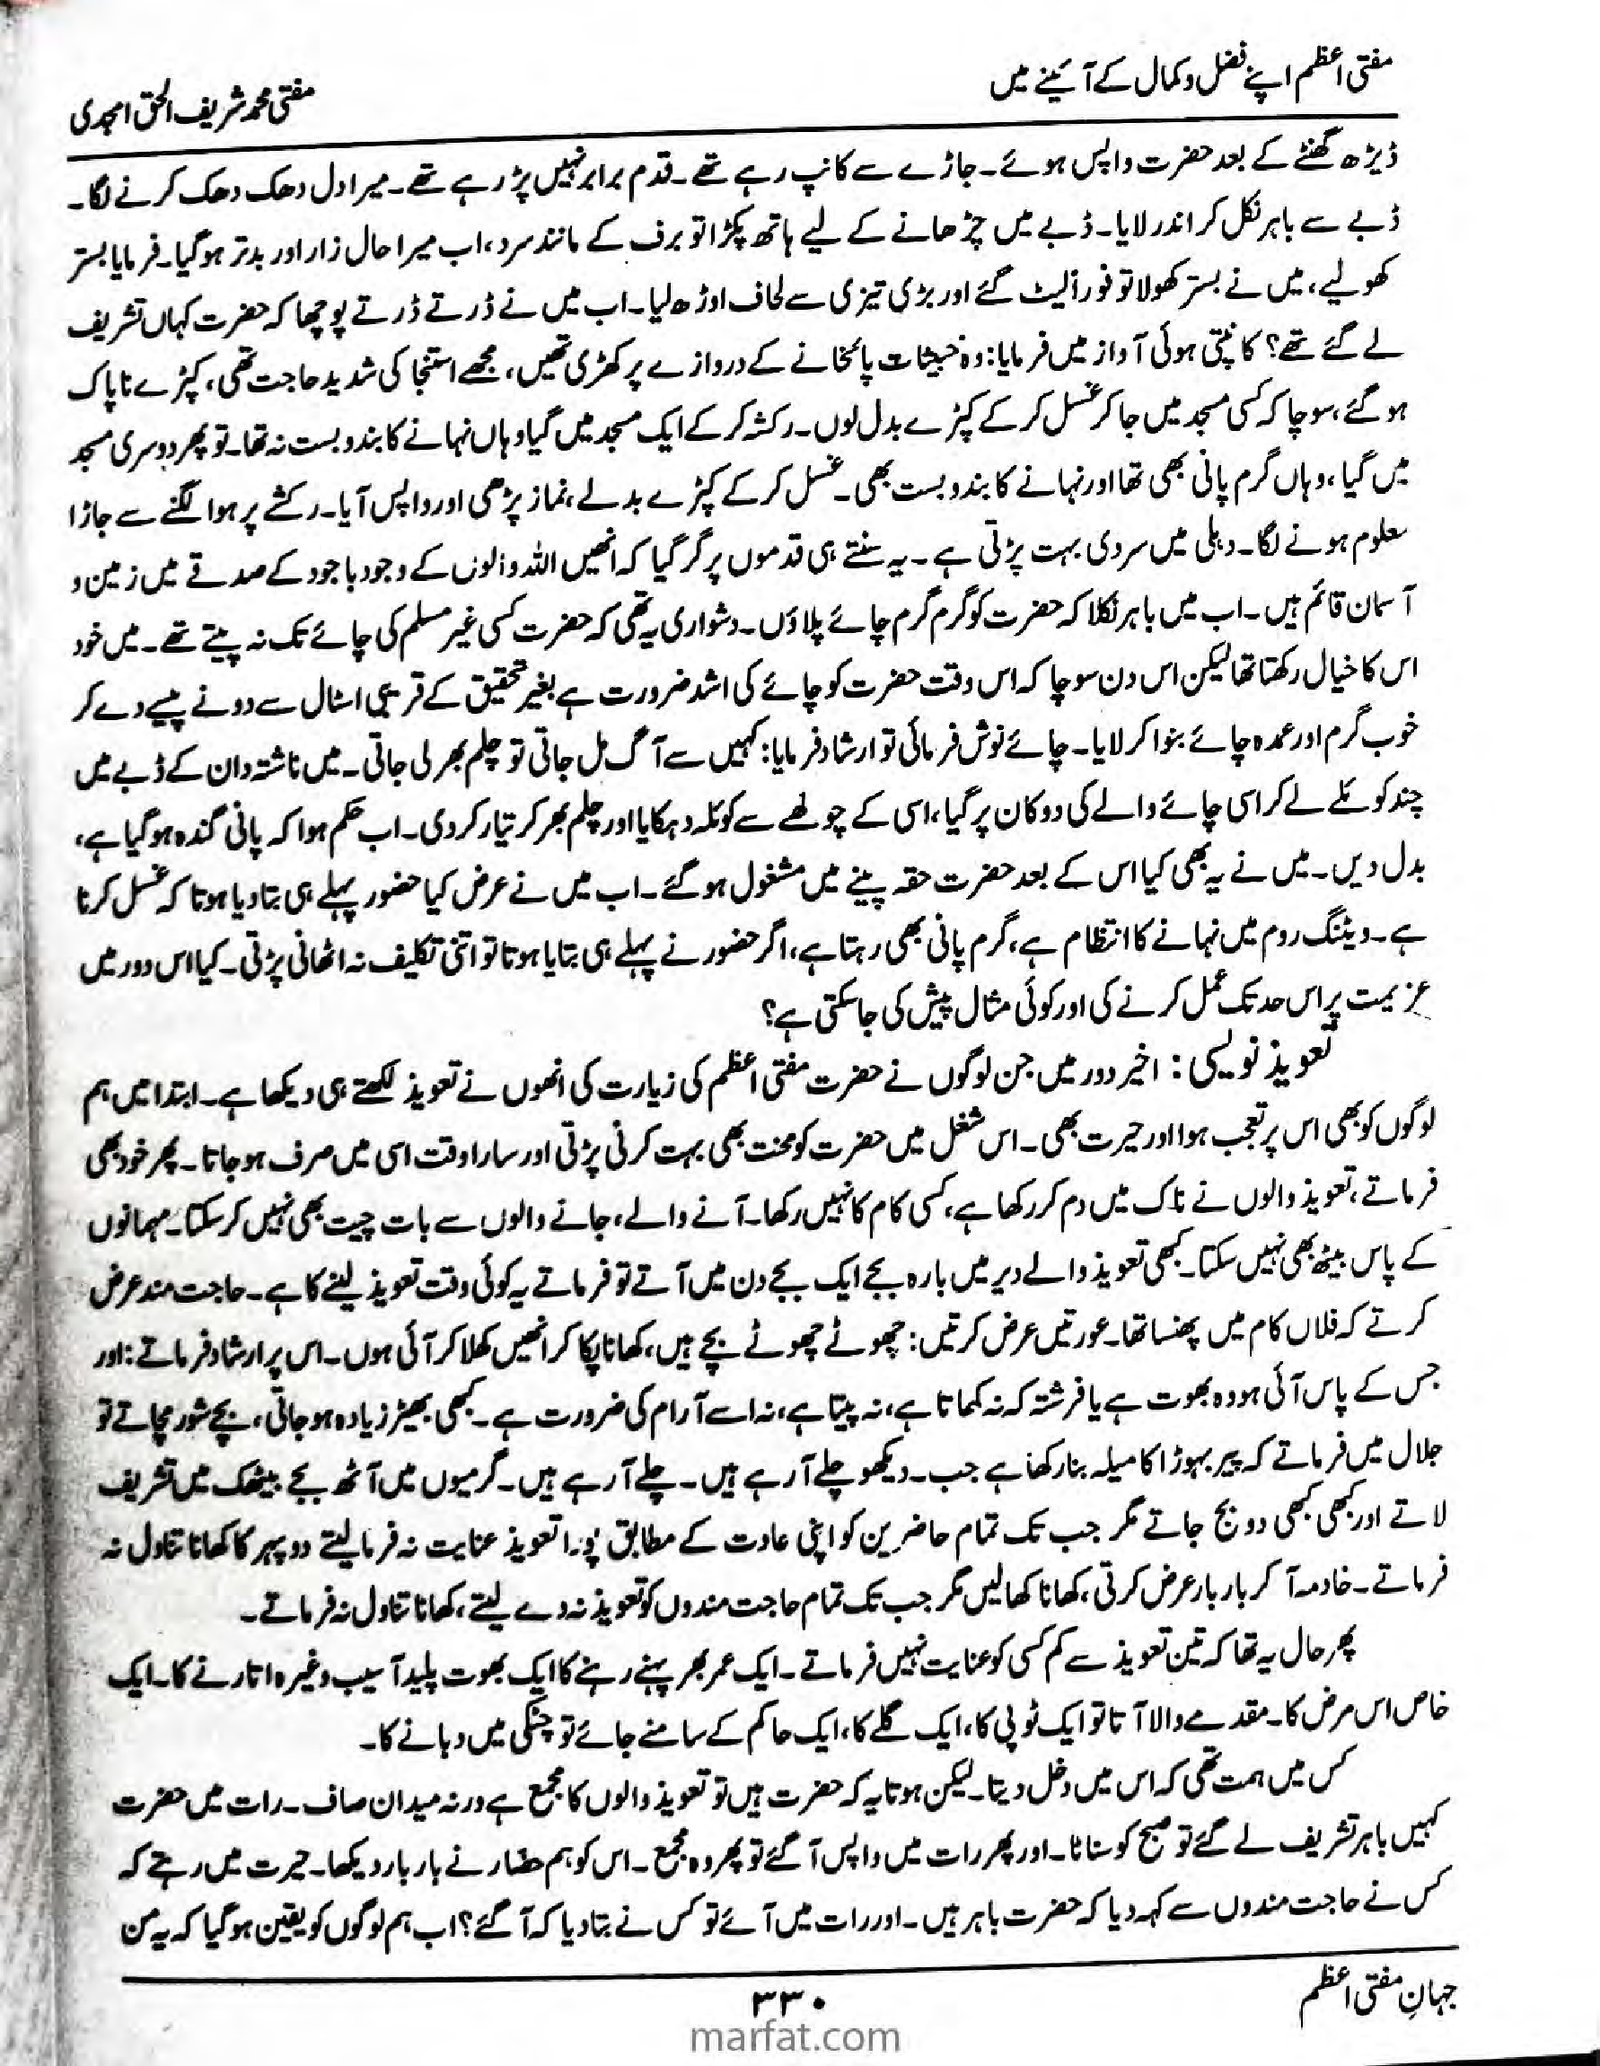 مفتی اعظم اپنے فضل و کمال کے آئینے میں
مفتی محمد شریف الحق امجدی
ڈیڑھ گھنٹے کے بعد حضرت واپس ہوئے۔ جاڑے سے کانپ رہے تھے۔ قدم برابر نہیں پڑ رہے تھے۔ میرا دل دھک دھک کرنے لگا۔
ڈبے سے باہر نکل کر اندر لایا۔ ڈبے میں چڑھانے کے لیے ہاتھ پکڑا تو برف کے مانند سرد، اب میرا حال زار اور بدتر ہوگیا۔ فرمایا بستر
کھولیے، میں نے بستر کھولا تو فوراً لیٹ گئے اور بڑی تیزی سے لحاف اوڑھ لیا۔ اب میں نے ڈرتے ڈرتے پوچھا کہ حضرت کہاں تشریف
لے گئے تھے؟ کانپتی ہوئی آواز میں فرمایا: وہ خبیثات پائخانے کے دروازے پر کھڑی تھیں، مجھے استنجا کی شدید حاجت تھی، کپڑے ناپاک
ہو گئے، سوچا کہ کسی مسجد میں جا کر غسل کر کے کپڑے بدل لوں۔ رکشہ کر کے ایک مسجد میں گیا وہاں نہانے کا بندوبست نہ تھا۔ تو پھر دوسری مسجد
میں گیا، وہاں گرم پانی بھی تھا اور نہانے کا بندوبست بھی۔ غسل کر کے کپڑے بدلے، نماز پڑھی اور واپس آیا۔ رکشے پر ہوا لگنے سے جاڑا
معلوم ہونے لگا۔ دہلی میں سردی بہت پڑتی ہے۔ یہ سنتے ہی قدموں پر گر گیا کہ انھیں اللہ والوں کے وجود باجود کے صدقے میں زمین و
آسمان قائم ہیں۔ اب میں باہر نکلا کہ حضرت کو گرم گرم چائے پلاؤں۔ دشواری یہ تھی کہ حضرت کسی غیر مسلم کی چائے تک نہ پیتے تھے۔ میں خود
اس کا خیال رکھتا تھا لیکن اس دن سوچا کہ اس وقت حضرت کو چائے کی اشد ضرورت ہے بغیر تحقیق کے قریبی اسٹال سے دونے پیسے دے کر
خوب گرم اور عمدہ چائے بنوا کر لایا۔ چائے نوش فرمائی تو ارشاد فرمایا: کہیں سے آگ مل جاتی تو چلم بھر لی جاتی۔ میں ناشتہ دان کے ڈبے میں
چند کوئلے لے کر اسی چائے والے کی دوکان پر گیا، اسی کے چولھے سے کوئلہ دہکایا اور چلم بھر کر تیار کر دی۔ اب حکم ہوا کہ پانی گندہ ہو گیا ہے،
بدل دیں۔ میں نے یہ بھی کیا اس کے بعد حضرت حقہ پینے میں مشغول ہو گئے۔ اب میں نے عرض کیا حضور پہلے ہی بتا دیا ہوتا کہ غسل کرنا
ہے۔ ویٹنگ روم میں نہانے کا انتظام ہے، گرم پانی بھی رہتا ہے، اگر حضور نے پہلے ہی بتایا ہوتا تو اتنی تکلیف نہ اٹھانی پڑتی۔ کیا اس دور میں
عزیمت پر اس حد تک عمل کرنے کی اور کوئی مثال پیش کی جا سکتی ہے؟
تعویذ نویسی: اخیر دور میں جن لوگوں نے حضرت مفتی اعظم کی زیارت کی انھوں نے تعویذ لکھتے ہی دیکھا ہے۔ ابتدا میں ہم
لوگوں کو بھی اس پر تعجب ہوا اور حیرت بھی۔ اس شغل میں حضرت کو محنت بھی بہت کرنی پڑتی اور سارا وقت اسی میں صرف ہو جاتا۔ پھر خود بھی
فرماتے، تعویذ والوں نے ناک میں دم کر رکھا ہے، کسی کام کا نہیں رکھا۔ آنے والے، جانے والوں سے بات چیت بھی نہیں کر سکتا۔ مہمانوں
کے پاس بیٹھ بھی نہیں سکتا۔ کبھی تعویذ والے دیر میں بارہ بجے ایک بجے دن میں آتے تو فرماتے یہ کوئی وقت تعویذ لینے کا ہے۔ حاجت مند عرض
کرتے کہ فلاں کام میں پھنسا تھا۔ عورتیں عرض کرتیں: چھوٹے چھوٹے بچے ہیں، کھانا پکا کر انھیں کھلا کر آئی ہوں۔ اس پر ارشاد فرماتے: اور
جس کے پاس آئی ہو وہ بھوت ہے یا فرشتہ کہ نہ کھاتا ہے، نہ پیتا ہے، نہ اسے آرام کی ضرورت ہے۔ کبھی بھیڑ زیادہ ہو جاتی، بچے شور مچاتے تو
جلال میں فرماتے کہ پیر بہوڑا کا میلہ بنا رکھا ہے جب۔ دیکھو چلے آرہے ہیں۔ چلے آرہے ہیں۔ گرمیوں میں آٹھ بجے بیٹھک میں تشریف
لاتے اور کبھی کبھی دو بج جاتے مگر جب تک تمام حاضرین کو اپنی عادت کے مطابق پورا تعویذ عنایت نہ فرما لیتے دوپہر کا کھانا تناول نہ
فرماتے۔ خادمہ آ کر بار بار عرض کرتی، کھانا کھا لیں مگر جب تک تمام حاجت مندوں کو تعویذ نہ دے لیتے، کھانا تناول نہ فرماتے۔
پھر حال یہ تھا کہ تین تعویذ سے کم کسی کو عنایت نہیں فرماتے۔ ایک عمر بھر پہنے رہنے کا ایک بھوت پلید آسیب وغیرہ اتارنے کا۔ ایک
خاص اس مرض کا۔ مقدمے والا آتا تو ایک ٹوپی کا، ایک گلے کا، ایک حاکم کے سامنے جائے تو چٹکی میں دبانے کا۔
کس میں ہمت تھی کہ اس میں دخل دیتا۔ لیکن ہوتا یہ کہ حضرت ہیں تو تعویذ والوں کا مجمع ہے ورنہ میدان صاف۔ رات میں حضرت
کہیں باہر تشریف لے گئے تو صبح کو سناٹا۔ اور پھر رات میں واپس آ گئے تو پھر وہ مجمع۔ اس کو ہم حضار نے بار بار دیکھا۔ حیرت میں رہتے کہ
کس نے حاجت مندوں سے کہہ دیا کہ حضرت باہر ہیں۔ اور رات میں آئے تو کس نے بتا دیا کہ آ گئے؟ اب ہم لوگوں کو یقین ہو گیا کہ یہ من
جہانِ مفتی اعظم
۳۳۰
marfat.com